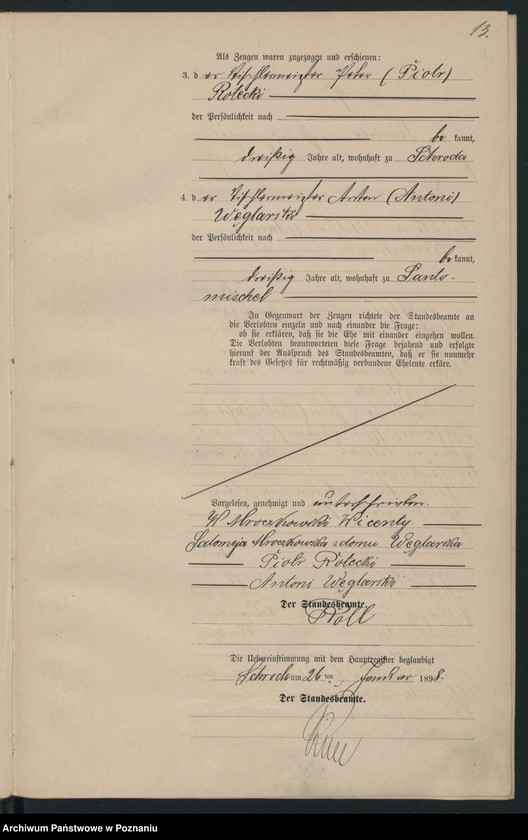 13.
Als Zeugen waren zugezogen und erschienen:
3. d er Tischlermeister Peter (Piotr)
Rolecki
der Persönlichkeit nach
be kannt,
dreißig Jahre alt, wohnhaft zu Schroda
4. d er Tischlermeister Anton (Antoni)
Węglarski
der Persönlichkeit nach
be kannt,
dreißig Jahre alt, wohnhaft zu Santo-
mischel
In Gegenwart der Zeugen richtete der Standesbeamte an
die Verlobten einzeln und nach einander die Frage:
ob sie erklären, daß sie die Ehe mit einander eingehen wollen.
Die Verlobten beantworteten diese Frage bejahend und erfolgte
hierauf der Ausspruch des Standesbeamten, daß er sie nunmehr
kraft des Gesetzes für rechtmäßig verbundene Eheleute erkläre.
Vorgelesen, genehmigt und unterschrieben.
Mroczkowski Wicenty
Salomeja Mroczkowska z domu Węglarska
Piotr Rolecki
Antoni Węglarski
Der Standesbeamte.
Roll
Die Uebereinstimmung mit dem Hauptregister beglaubigt
Schroda am 26 ten Januar 1898.
Der Standesbeamte.
Archiwum Państwowe w Poznaniu